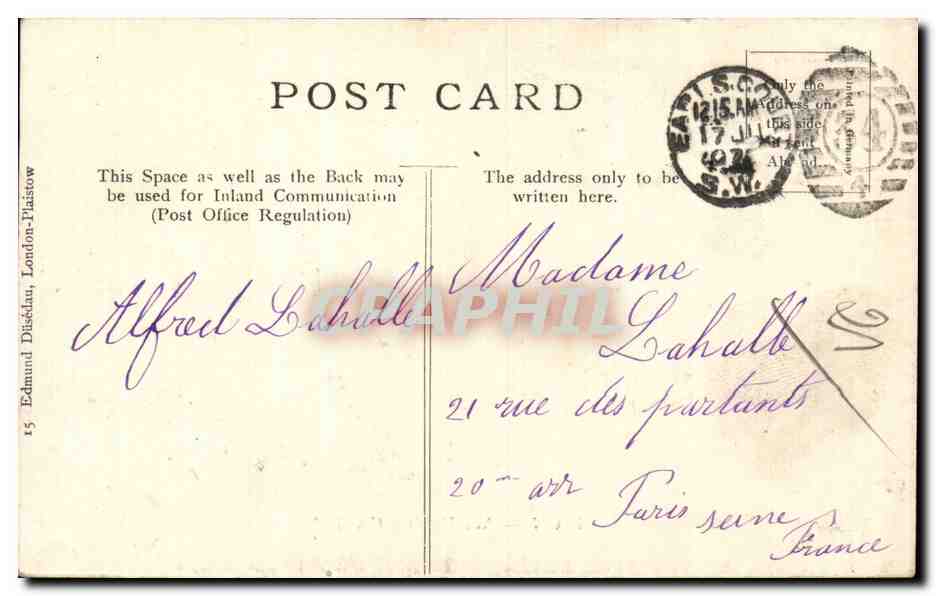 POST CARD
This Space as well as the Back may
be used for Inland Communication
(Post Office Regulation)
The address only to be
written here.
Only the
Address on
this side
Printed in Germany
EARLS COURT
12 15 AM
17 JU
S.W.
15 Edmund Düsédau, London-Plaistow
Alfred Lahalle
Madame
Lahalle
21 rue des partants
20me arr
Paris seine
France
GRAPHIL